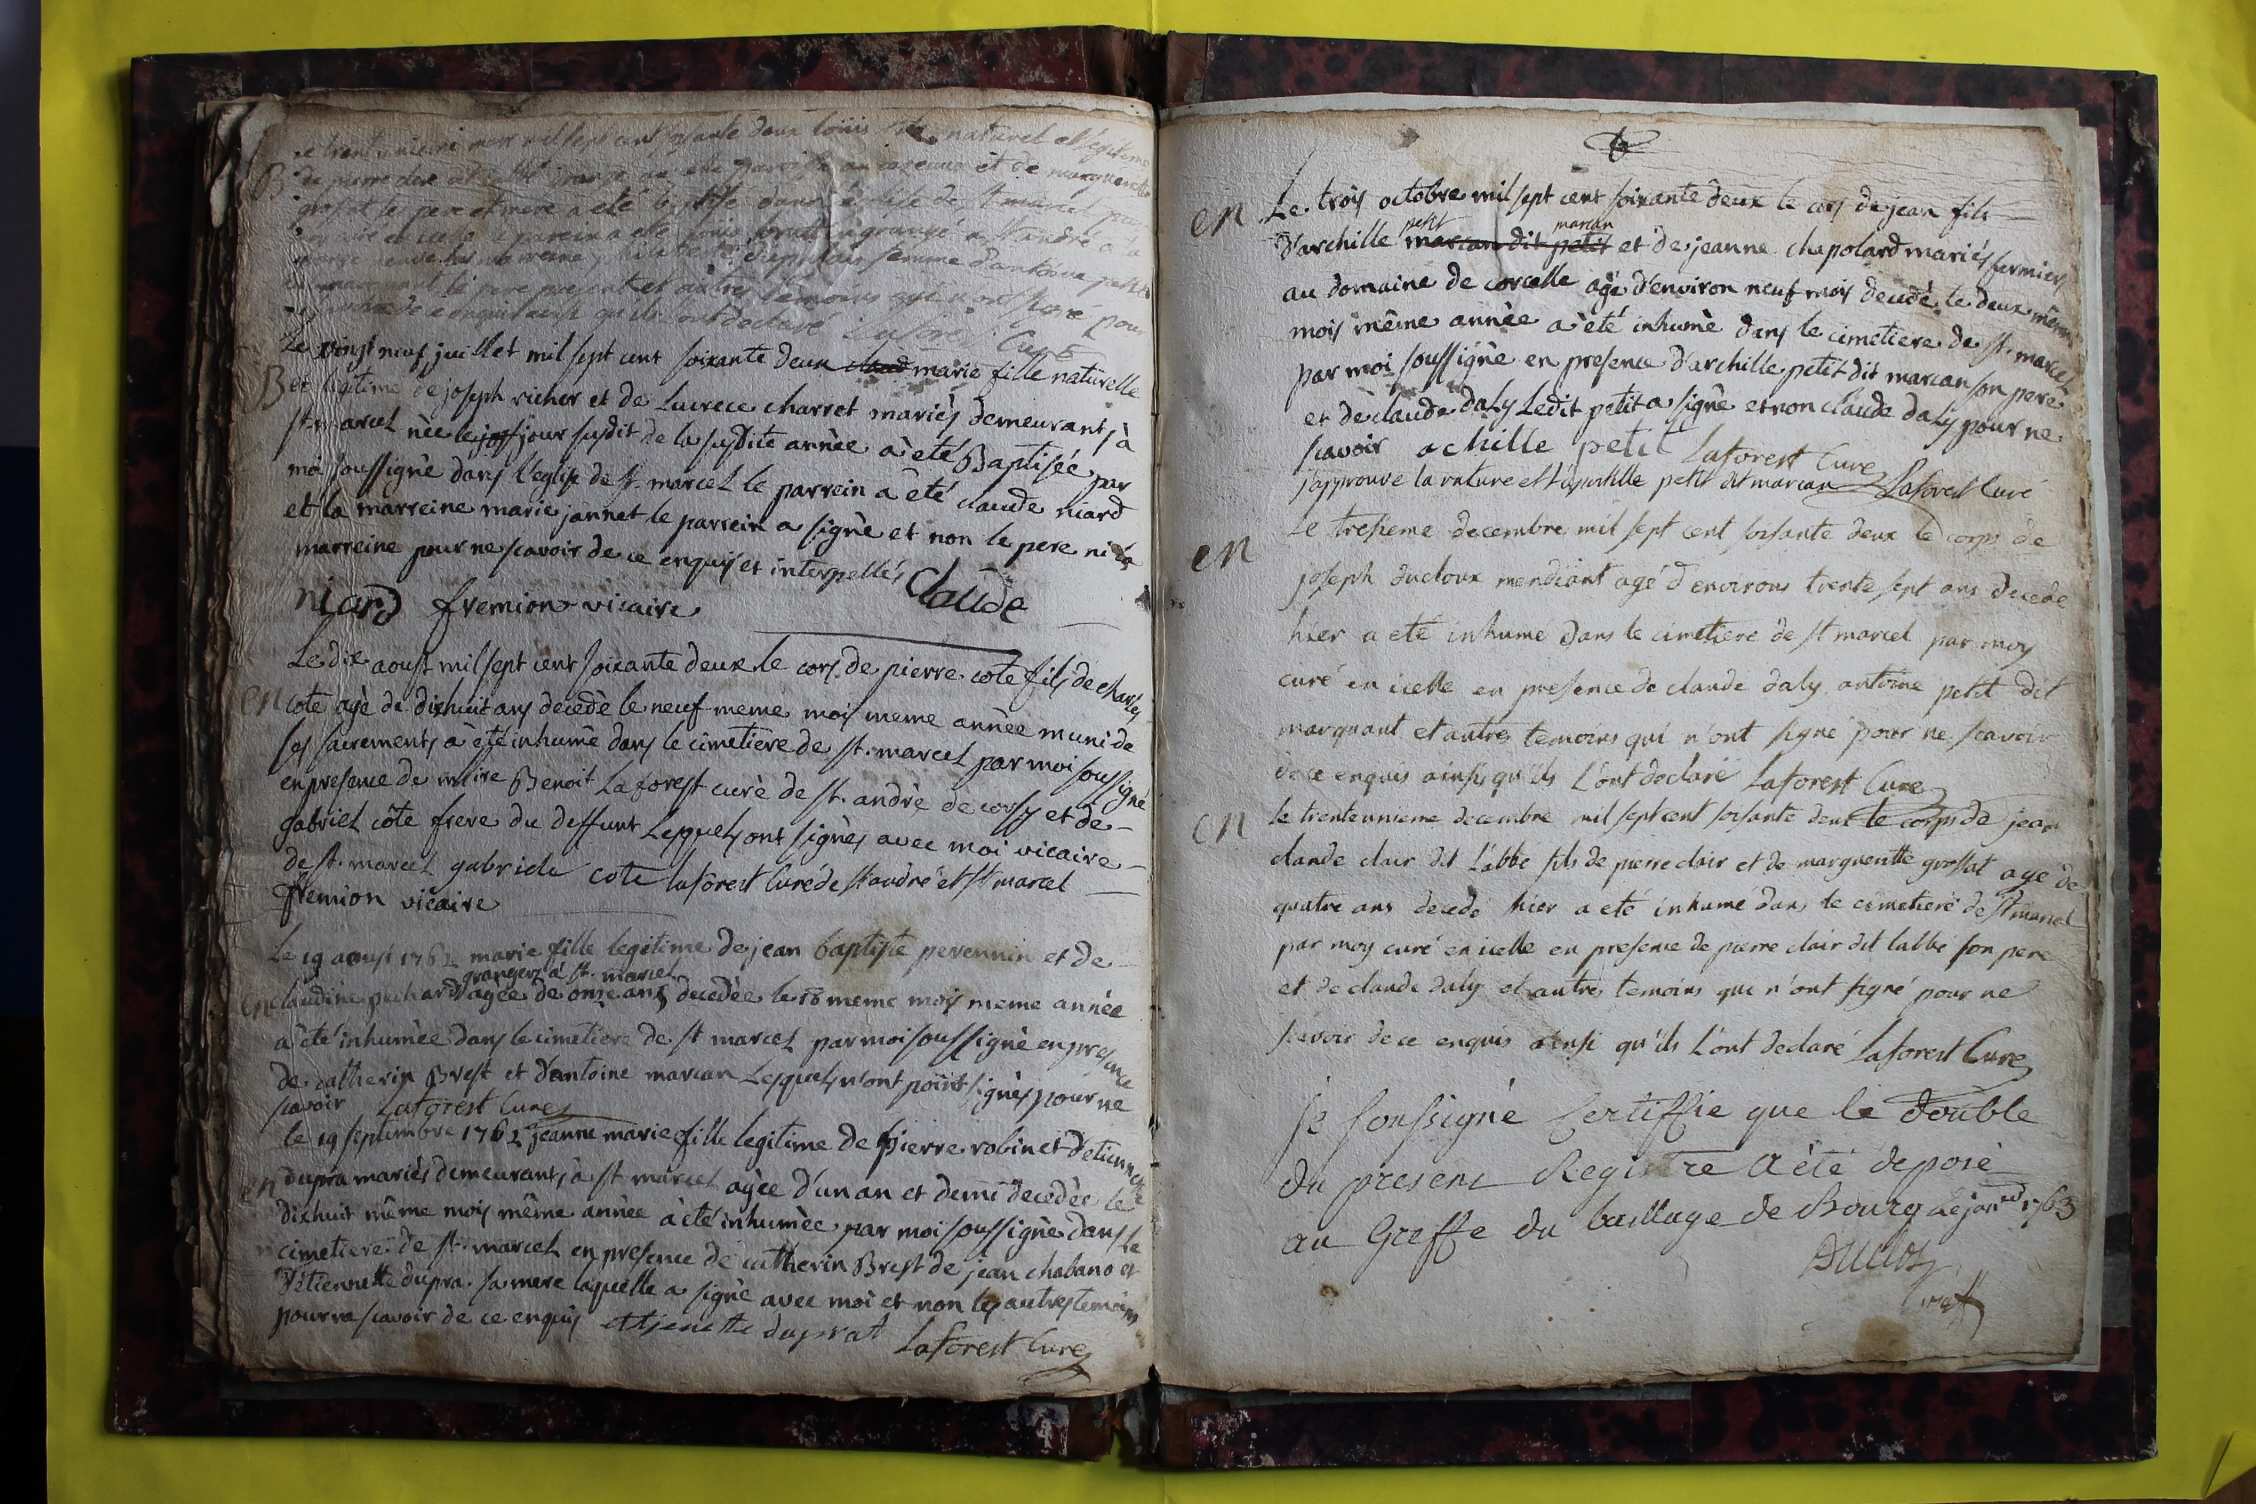 mil sept cent soixante deux loüis fils naturel et légitime
B
de pierre et de marguerite
grossat ses pere et mere a eté baptisé dans l'église de st marcel
le parein a eté
femme d'antoine petit
le pere present et autres témoins qui n'ont signé pour
de ce enquis ainsi qu'ils ont déclaré Laforest Curé
Le vingt neuf juillet mil sept cent soixante deux claud marie fille natürelle
B et legitime de joseph richer et de Lucrece charret mariés demeurants à
st. marcel née le jou jour susdit de la susdite année a èté Baptisée par
moi soussigné dans l'eglise de st. marcel le parrein a èté claude niard
et la marreine marie jannet le parrein a signè et non le pere ni la
marreine pour ne scavoir de ce enquis et interpellés Claude
niard fremion vicaire
Le dix aoust mil sept cent soixante deux le cors de pierre cote fils de charles
en cote agè de dixhuit ans decedè le neuf meme mois meme annèe muni de
ses sacrements a èté inhumè dans le cimetiere de st. marcel par moi soussigné
en presence de mre Benoit Laforest curè de st. andrè de corsy et de
gabriel côte frere du deffunt Lesquels ont signès avec moi vicaire
de st. marcel gabriele cote laforest Curé de st andré et st marcel
fremion vicaire
Le 19 aoust 1762 marie fille legitime de jean baptiste perennin et de
grangers à st. marcel
en claudine pechard agèe de onze ans decedèe le 18 meme mois meme annèe
a èté inhumèe dans le cimetiere de st marcel par moi soussigné en presence
de catherin Brest et d'antoine marcan Lesquels n'ont point signès pour ne
scavoir Laforest Curé
le 19 septembre 1762 jeanne marie fille legitime de pierre robin et d'etiennette
en dupra mariès demeurants à st marcel agèe d'un an et demi decedèe le
dixhuit même mois même annèe a èté inhumèe par moi soussigné dans le
cimetiere de st. marcel en presence de catherin Brest de jean chabano et
d'etiennette dupra sa mere laquelle a signè avec moi et non les autres temoins
pour ne scavoir de ce enquis etienette duprat
Laforest Curé
Le trois octobre mil sept cent soixante deux le cors de jean fils
en
petit marcan
d'archille marcan dit petit et de jeanne chapolard mariés fermiers
au domaine de corcelle agé d'environ neuf mois decedè le deux même
mois même année a èté inhumè dans le cimetiere de st. marcel
par moi soussignè en presence d'archille petit dit marcan son pere
et de claude daly Ledit petit a signè et non claude daly pour ne
scavoir achille petit Laforest Curé
j'approuve la rature et l'apostille petit dit marcan Laforest Curé
Le tresieme decembre mil sept cent soisante deux le corps de
en
joseph ducloux mendiant agé d'environs trente sept ans decede
hier a eté inhume dans le cimetiere de st marcel par moy
curé en icelle en presence de claude daly antoine petit dit
marquant et autres temoins qui n'ont signé pour ne scavoir
de ce enquis ainsi qu'ils l'ont declaré Laforest Curé
en
le trente unieme decembre mil sept cent soisante deux le corps de jean
claude clair dit l'abbe fils de pierre clair et de marguerite grossat age de
quatre ans decedé hier a eté inhumé dans le cimetiere de st marcel
par moy curé en icelle en presence de pierre clair dit labbé son pere
et de claude daly et autres temoins qui n'ont signé pour ne
scavoir de ce enquis ainsi qu'ils l'ont declaré Laforest Curé
je soussigné Certiffie que le double
du present Registre a été deposé
au Greffe du bailliage de Bourg le janer 1763
Duclos